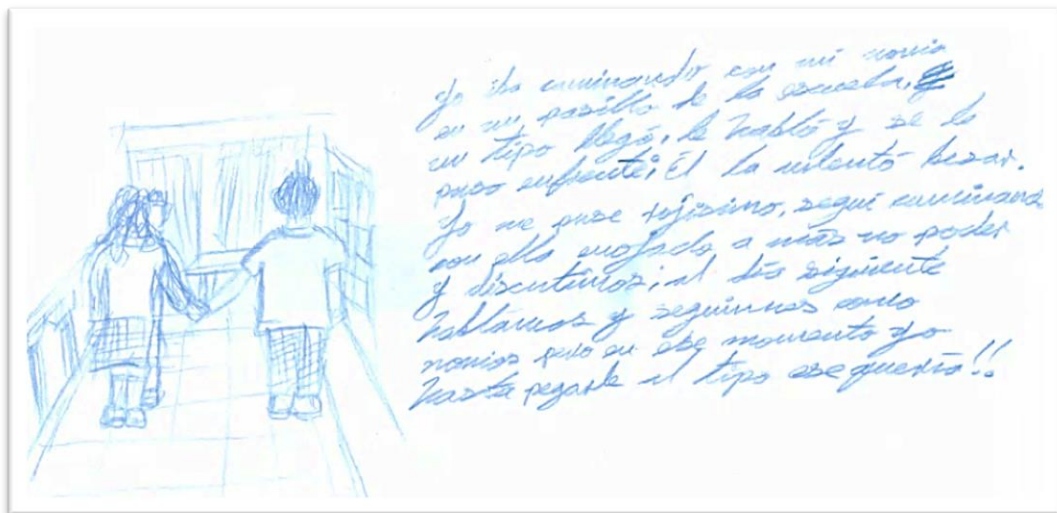 Yo iba caminando con mi novia
en un pasillo de la escuela, y
un tipo llegó, le habló y se le
puso enfrente; Él la intentó besar.
Yo me puse rojísimo, seguí caminando
con ella enojado a más no poder
y discutimos; al día siguiente
hablamos y seguimos como
novios pero en ese momento yo
hasta pegarle al tipo ese quería!!